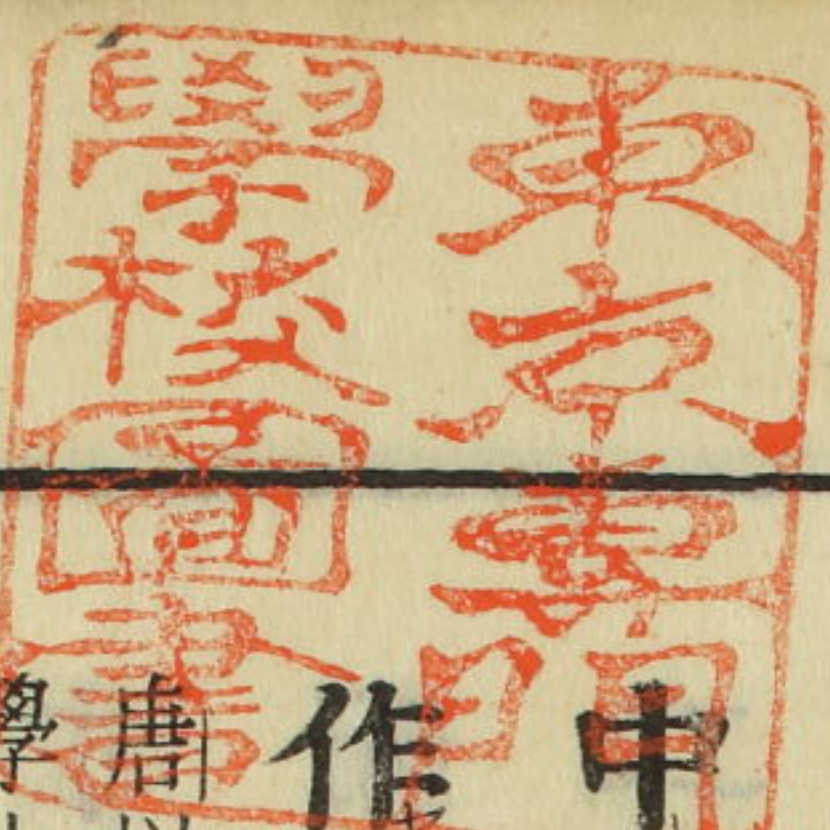 東京專門
學校圖書
申
作
唐
學